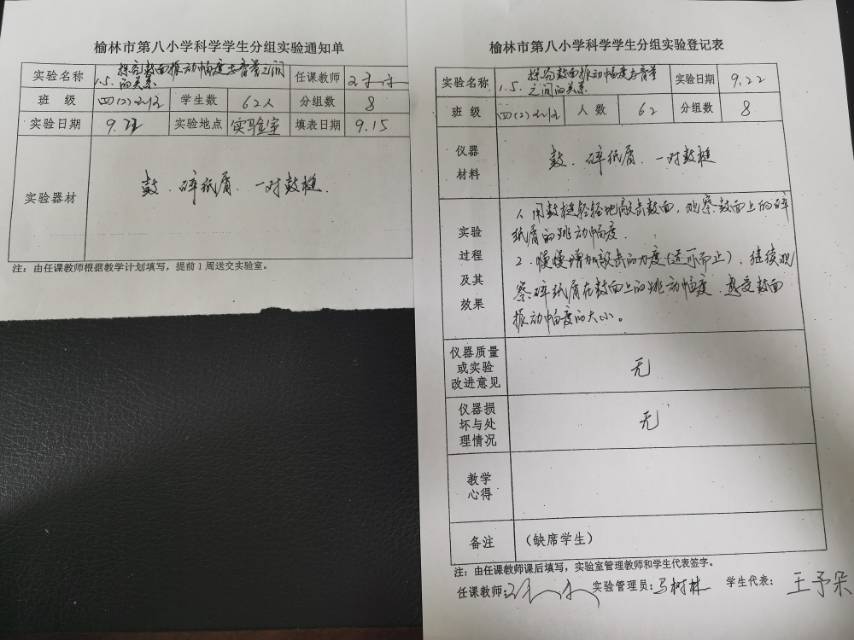 榆林市第八小学科学学生分组实验通知单
实验名称 1.5.探究鼓面振动幅度与音量之间的关系 任课教师
班 级 四(2) 学生数 62人 分组数 8
实验日期 9.22 实验地点 实验室 填表日期 9.15
实验器材 鼓、碎纸屑、一对鼓槌.
注：由任课教师根据教学计划填写，提前1周送交实验室。
榆林市第八小学科学学生分组实验登记表
实验名称 1.5.探究鼓面振动幅度与音量之间的关系 实验日期 9.22
班 级 四(2) 人 数 62 分组数 8
仪器材料 鼓、碎纸屑、一对鼓槌
实验过程及其效果
1、用鼓槌轻轻地敲击鼓面，观察鼓面上的碎
纸屑的跳动幅度.
2、慢慢增加敲击的力度(适可而止)，继续观
察碎纸屑在鼓面上的跳动幅度，感受鼓面
振动幅度的大小。
仪器质量或实验改进意见 无
仪器损坏与处理情况 无
教学心得
备注 （缺席学生）
注：由任课教师课后填写，实验室管理教师和学生代表签字。
任课教师: 实验管理员:马树林 学生代表: 王予朵